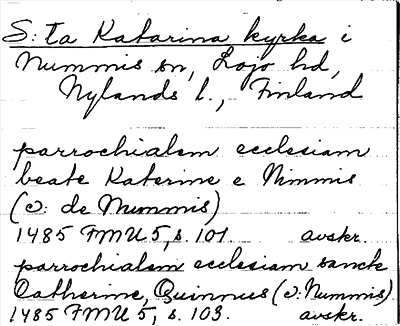 S:ta Katarina kyrka i
Nummis sn, Lojo hd,
Nylands l., Finland
parrochialem ecclesiam
beate Katerine e Nimmis
(ɔ: de Nummis)
1485 FMU 5, s. 101. avskr.
parrochialem ecclesiam sancte
Catherine, Quinnus (ɔ: Nummis)
1485 FMU 5, s. 103. avskr.